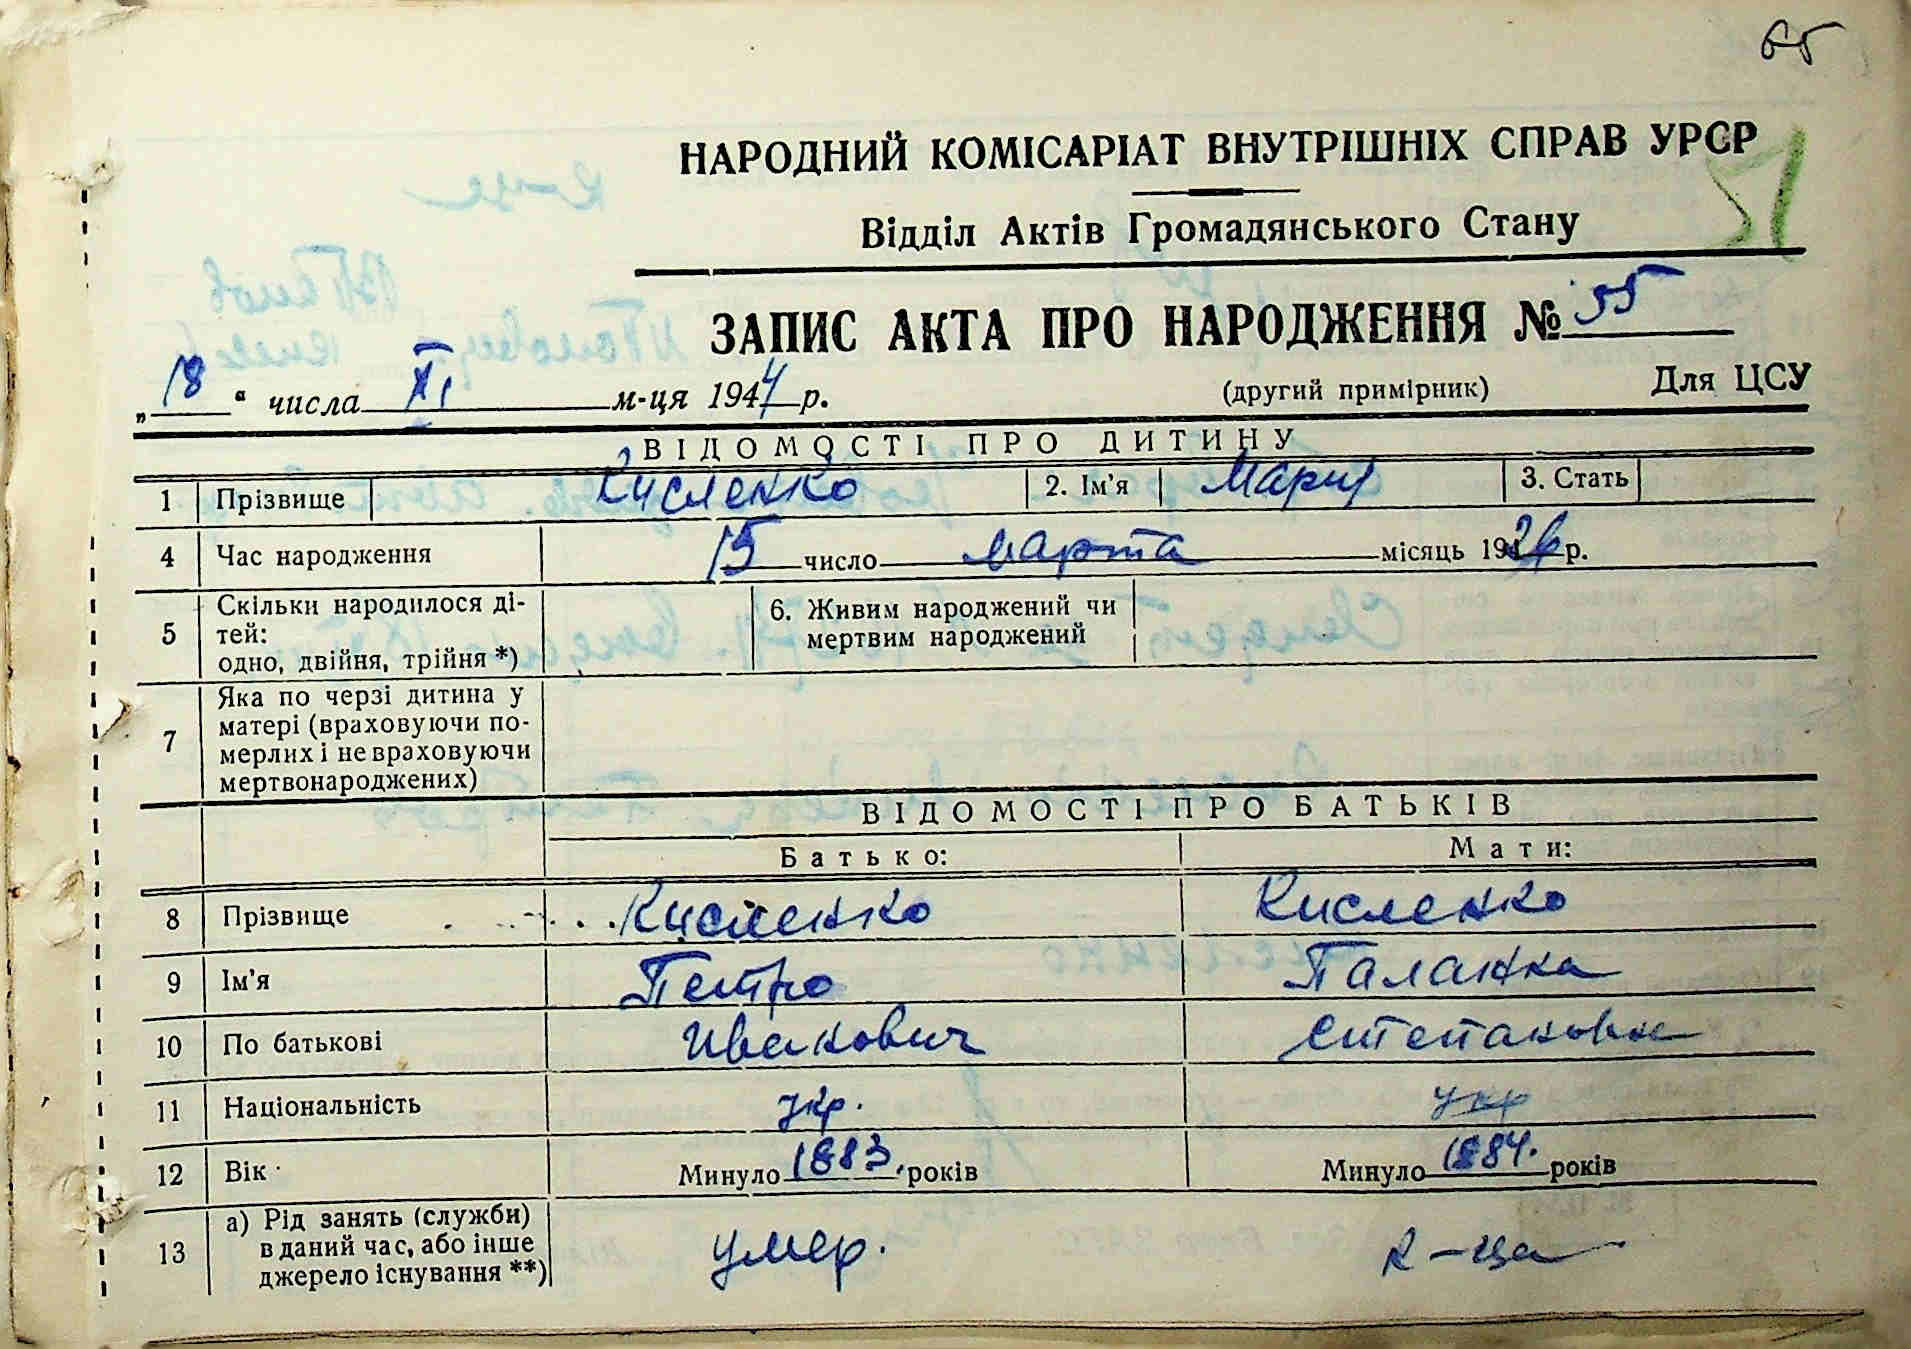 65
НАРОДНИЙ КОМІСАРІАТ ВНУТРІШНІХ СПРАВ УРСР
Відділ Актів Громадянського Стану
ЗАПИС АКТА ПРО НАРОДЖЕННЯ № 55
„18“ числа XI м-ця 1944 р. (другий примірник) Для ЦСУ
ВІДОМОСТІ ПРО ДИТИНУ
1 Прізвище Кисленко 2. Ім'я Мария 3. Стать
4 Час народження 15 число марта місяць 1926 р.
5 Скільки народилося ді-
тей:
одно, двійня, трійня *)
6. Живим народжений чи
мертвим народжений
7 Яка по черзі дитина у
матері (враховуючи по-
мерлих і не враховуючи
мертвонароджених)
ВІДОМОСТІ ПРО БАТЬКІВ
Батько: Мати:
8 Прізвище Кисленко Кисленко
9 Ім'я Петро Паланка
10 По батькові Иванович Степановна
11 Національність укр. укр
12 Вік Минуло 1883. років Минуло 1884. років
13 а) Рід занять (служби)
в даний час, або інше
джерело існування **)
умер. к-ца